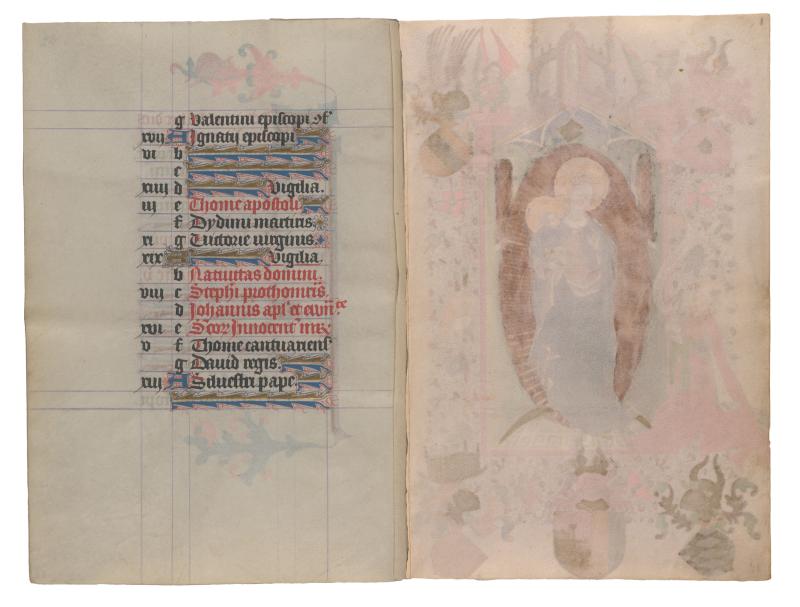 g Valentini episcopi et
xvij A Ignatij episcopi
vi b
c
xiiij d Vigilia.
iij e Thome apostoli
f Dydimi martiris
xi g Victorie virginis
xix Vigilia.
b Natiuitas domini.
viij c Stephi prothomris
d Johannis apl' et
xvi e Scor Innocent
v f Thome cantuariens
g Dauid regis.
xiij A Siluestri pape.